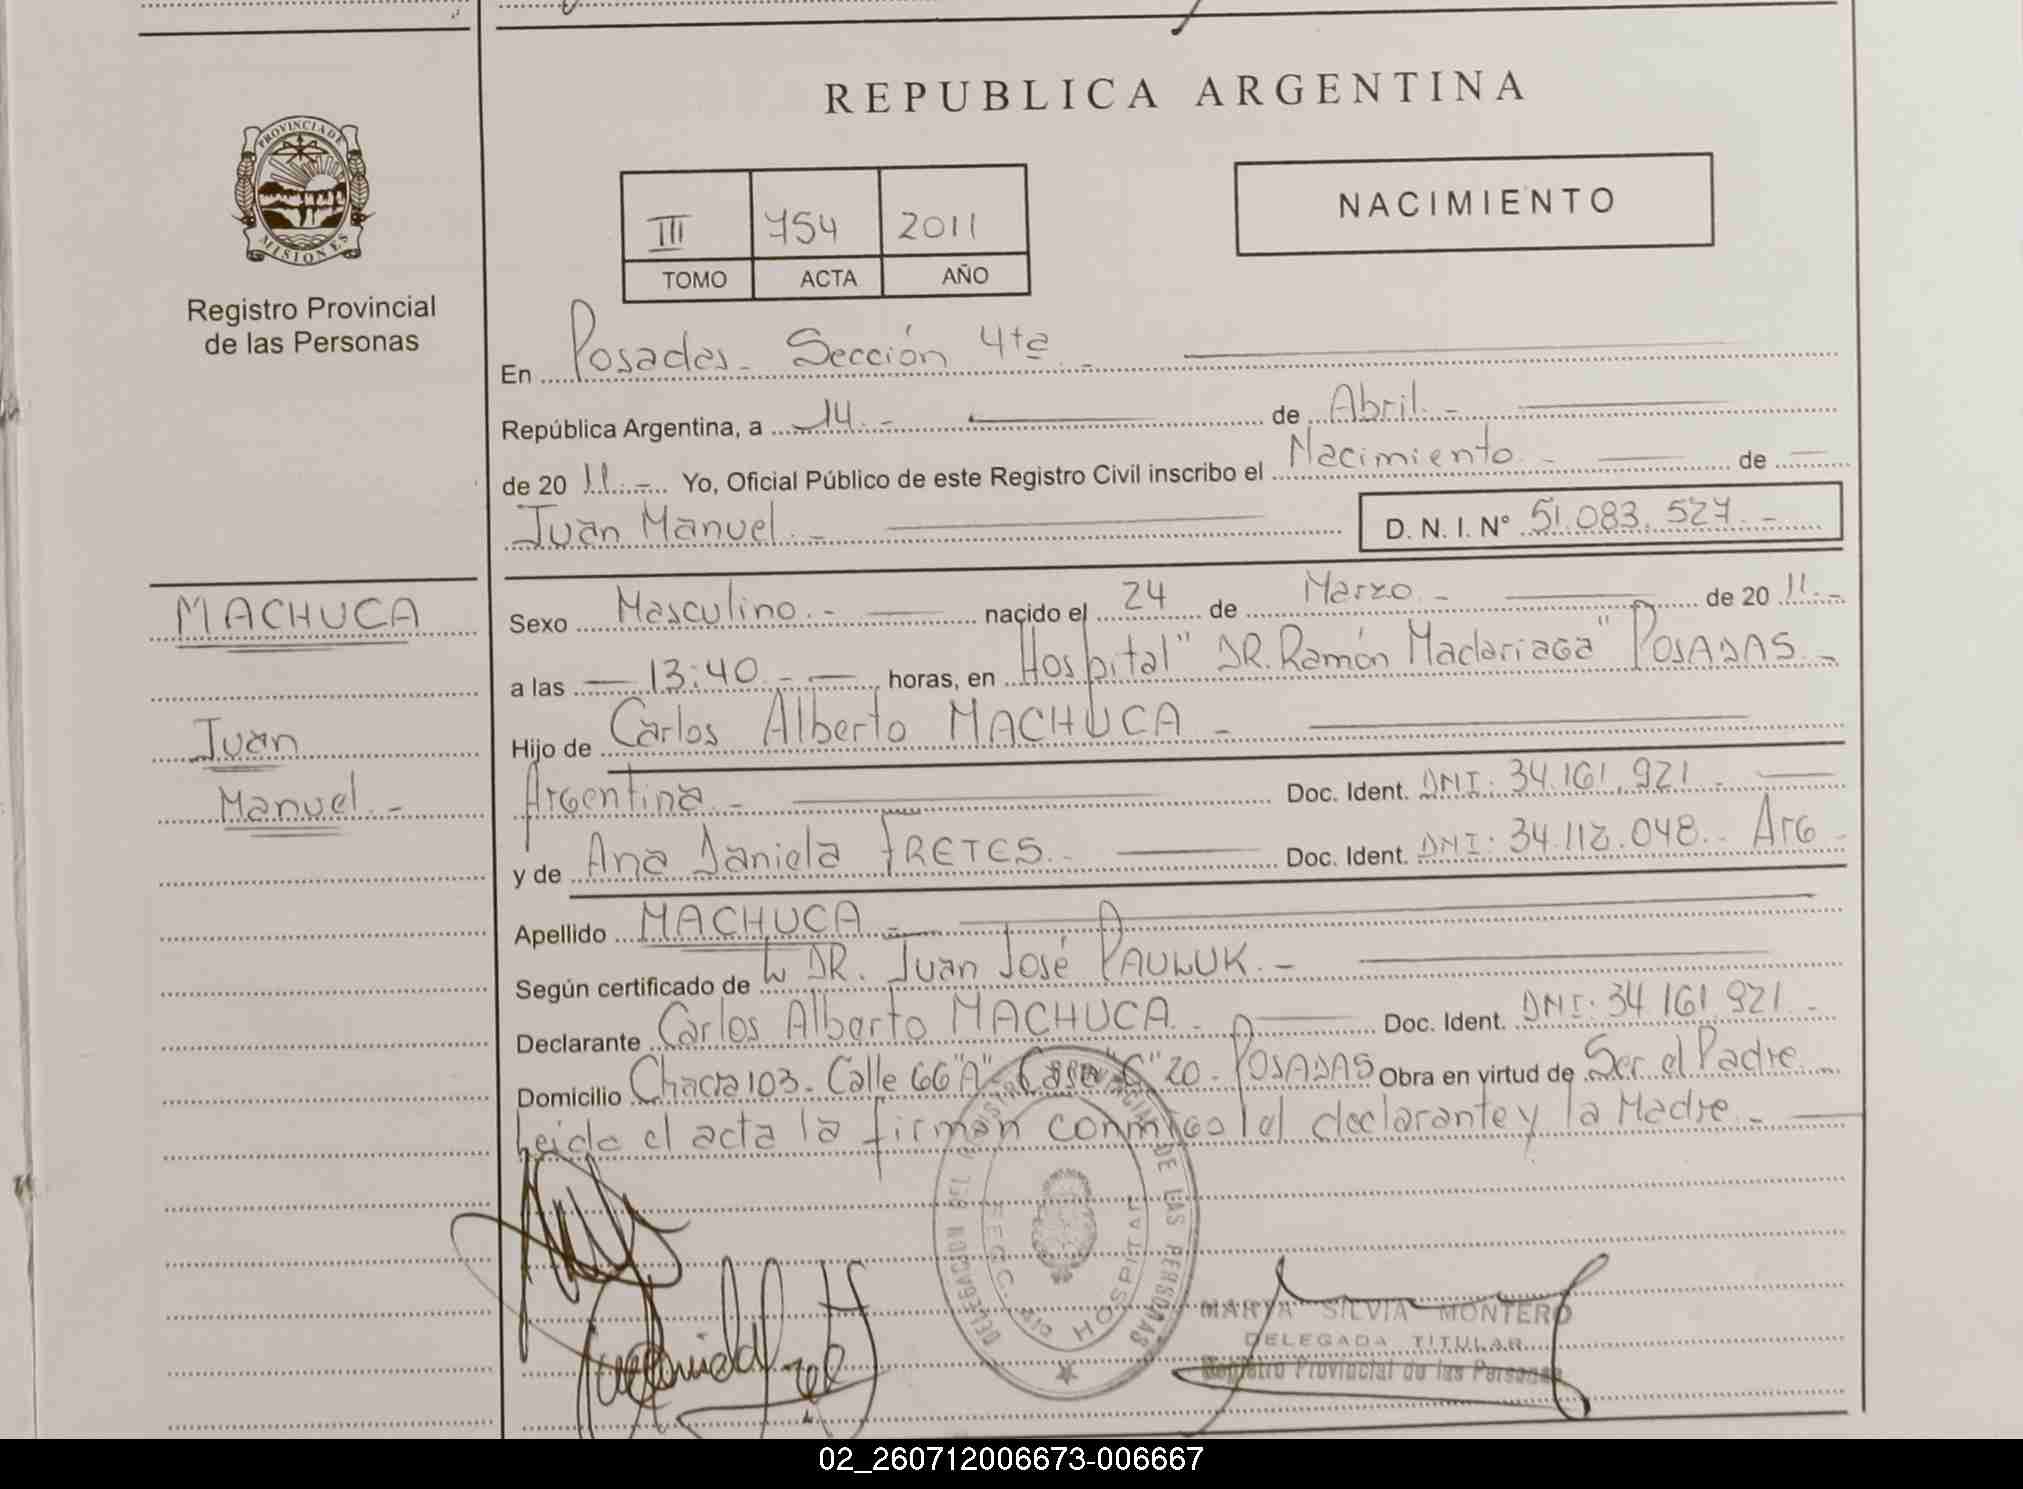 REPUBLICA ARGENTINA
PROVINCIA DE
MISIONES
Registro Provincial
de las Personas
III 754 2011
TOMO ACTA AÑO
NACIMIENTO
En Posadas - Sección 4ta -
República Argentina, a 14 - de Abril -
de 20 11 - Yo, Oficial Público de este Registro Civil inscribo el Nacimiento - de
Juan Manuel - D. N. I. N° 51.083.527 -
MACHUCA
Juan
Manuel -
Sexo Masculino - nacido el 24 de Marzo - de 20 11 -
a las 13:40 - horas, en Hospital "DR. Ramón Madariaga" POSADAS -
Hijo de Carlos Alberto MACHUCA -
Argentina - Doc. Ident. DNI: 34.161.921 -
y de Ana Daniela FRETES - Doc. Ident. DNI: 34.112.048 - Arg -
Apellido MACHUCA -
Según certificado de DR. Juan José PAULUK -
Declarante Carlos Alberto MACHUCA - Doc. Ident. DNI: 34.161.921 -
Domicilio Chacra 103 - Calle 66 "A" Casa "C" 20 - POSADAS Obra en virtud de Ser el Padre
Leida el acta la firman conmigo el declarante y la Madre -
DELEGACION DEL REGISTRO PROVINCIAL DE LAS PERSONAS
SECC. 4ta HOSPITAL
MARTA SILVIA MONTERO
DELEGADA TITULAR
Registro Provincial de las Personas
02_260712006673-006667